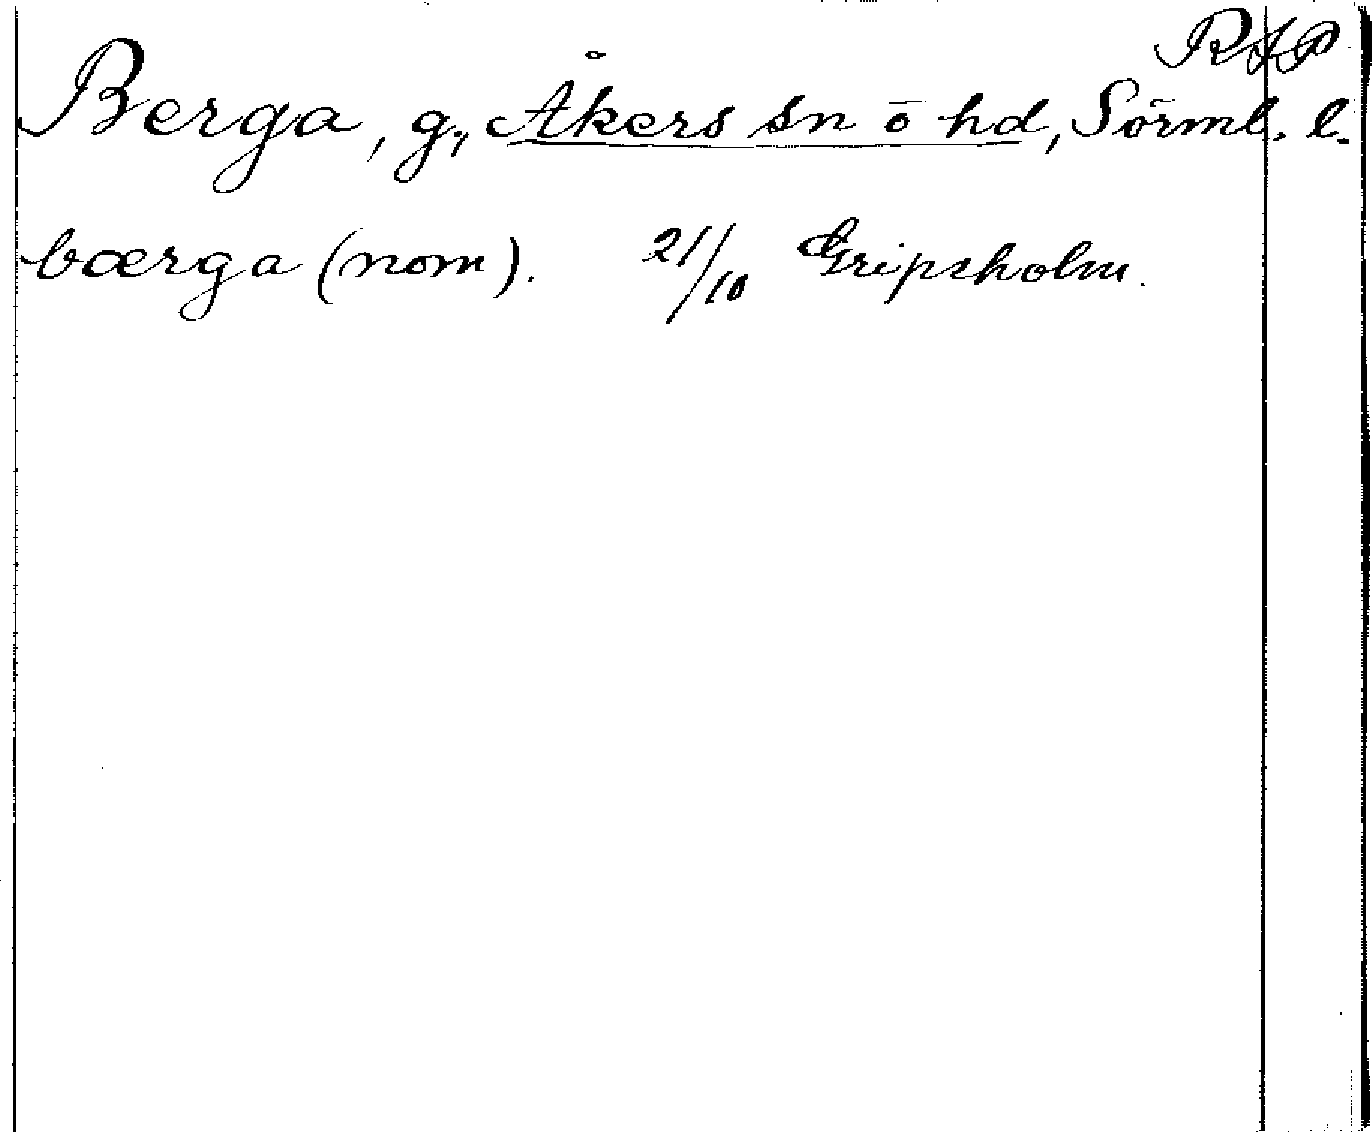 RAP
Berga, g., Åkers sn o hd, Sörml. l.
bærga (nom). 21/10 Gripsholm.